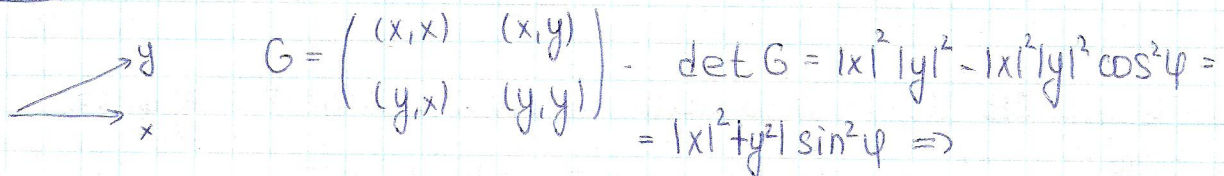 y
x
G = ( (x,x) (x,y) (y,x) (y,y) ) - det G = |x|² |y|² - |x|²|y|² cos²φ =
= |x|² + y²| sin²φ =>